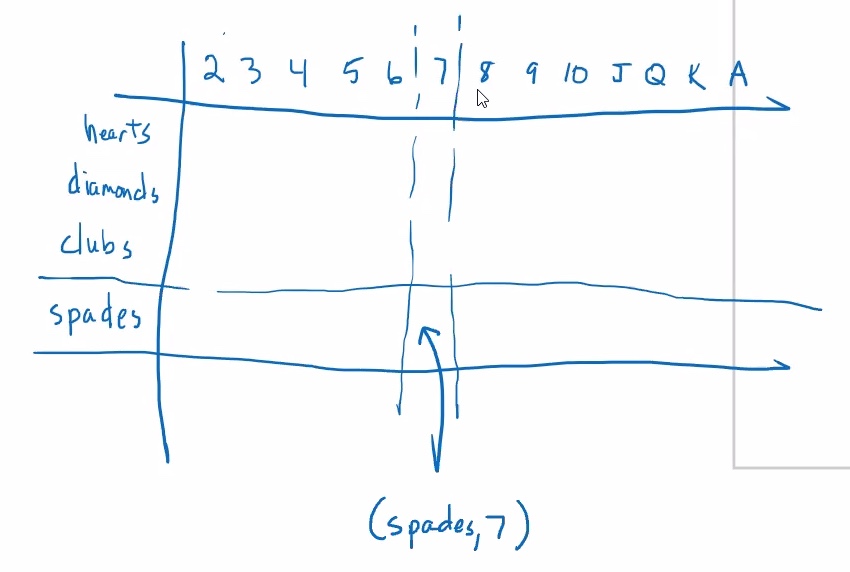 2 3 4 5 6 7 8 9 10 J Q K A
hearts
diamonds
clubs
spades
(spades, 7)